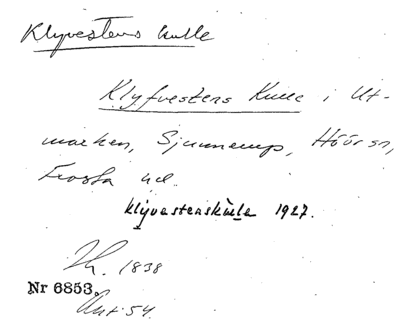 Klyvestens kulle
Klyfvestens Kulle i Ut-
marken, Sjunnerup, Höör sn,
Frosta hd.
klyvestenskulle 1927.
1838
Nr 6853.
Ant. 54.